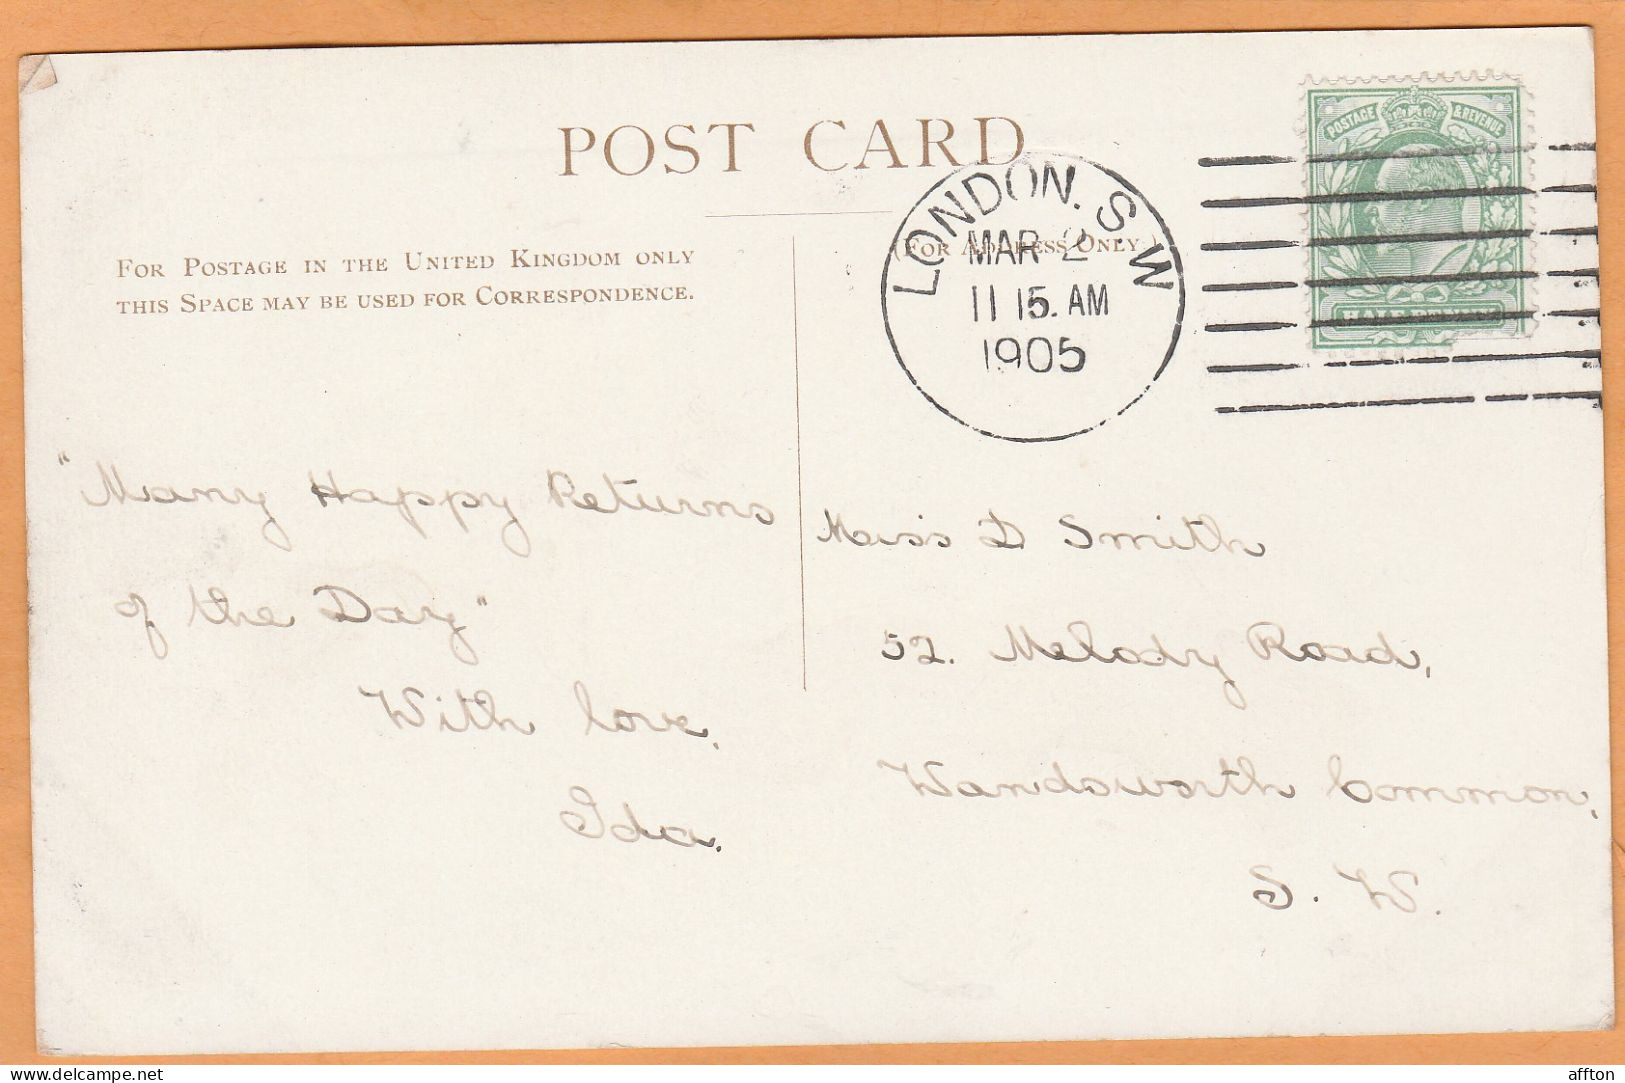 POST CARD
FOR POSTAGE IN THE UNITED KINGDOM ONLY
THIS SPACE MAY BE USED FOR CORRESPONDENCE.
(FOR ADDRESS ONLY.)
LONDON. S.W
MAR 2
11 15. AM
1905
POSTAGE & REVENUE
HALF PENNY
"Many Happy Returns
of the Day"
With love,
Ida.
Miss D Smith
52. Melody Road,
Wandsworth Common,
S. W.
delcampe.net
affton